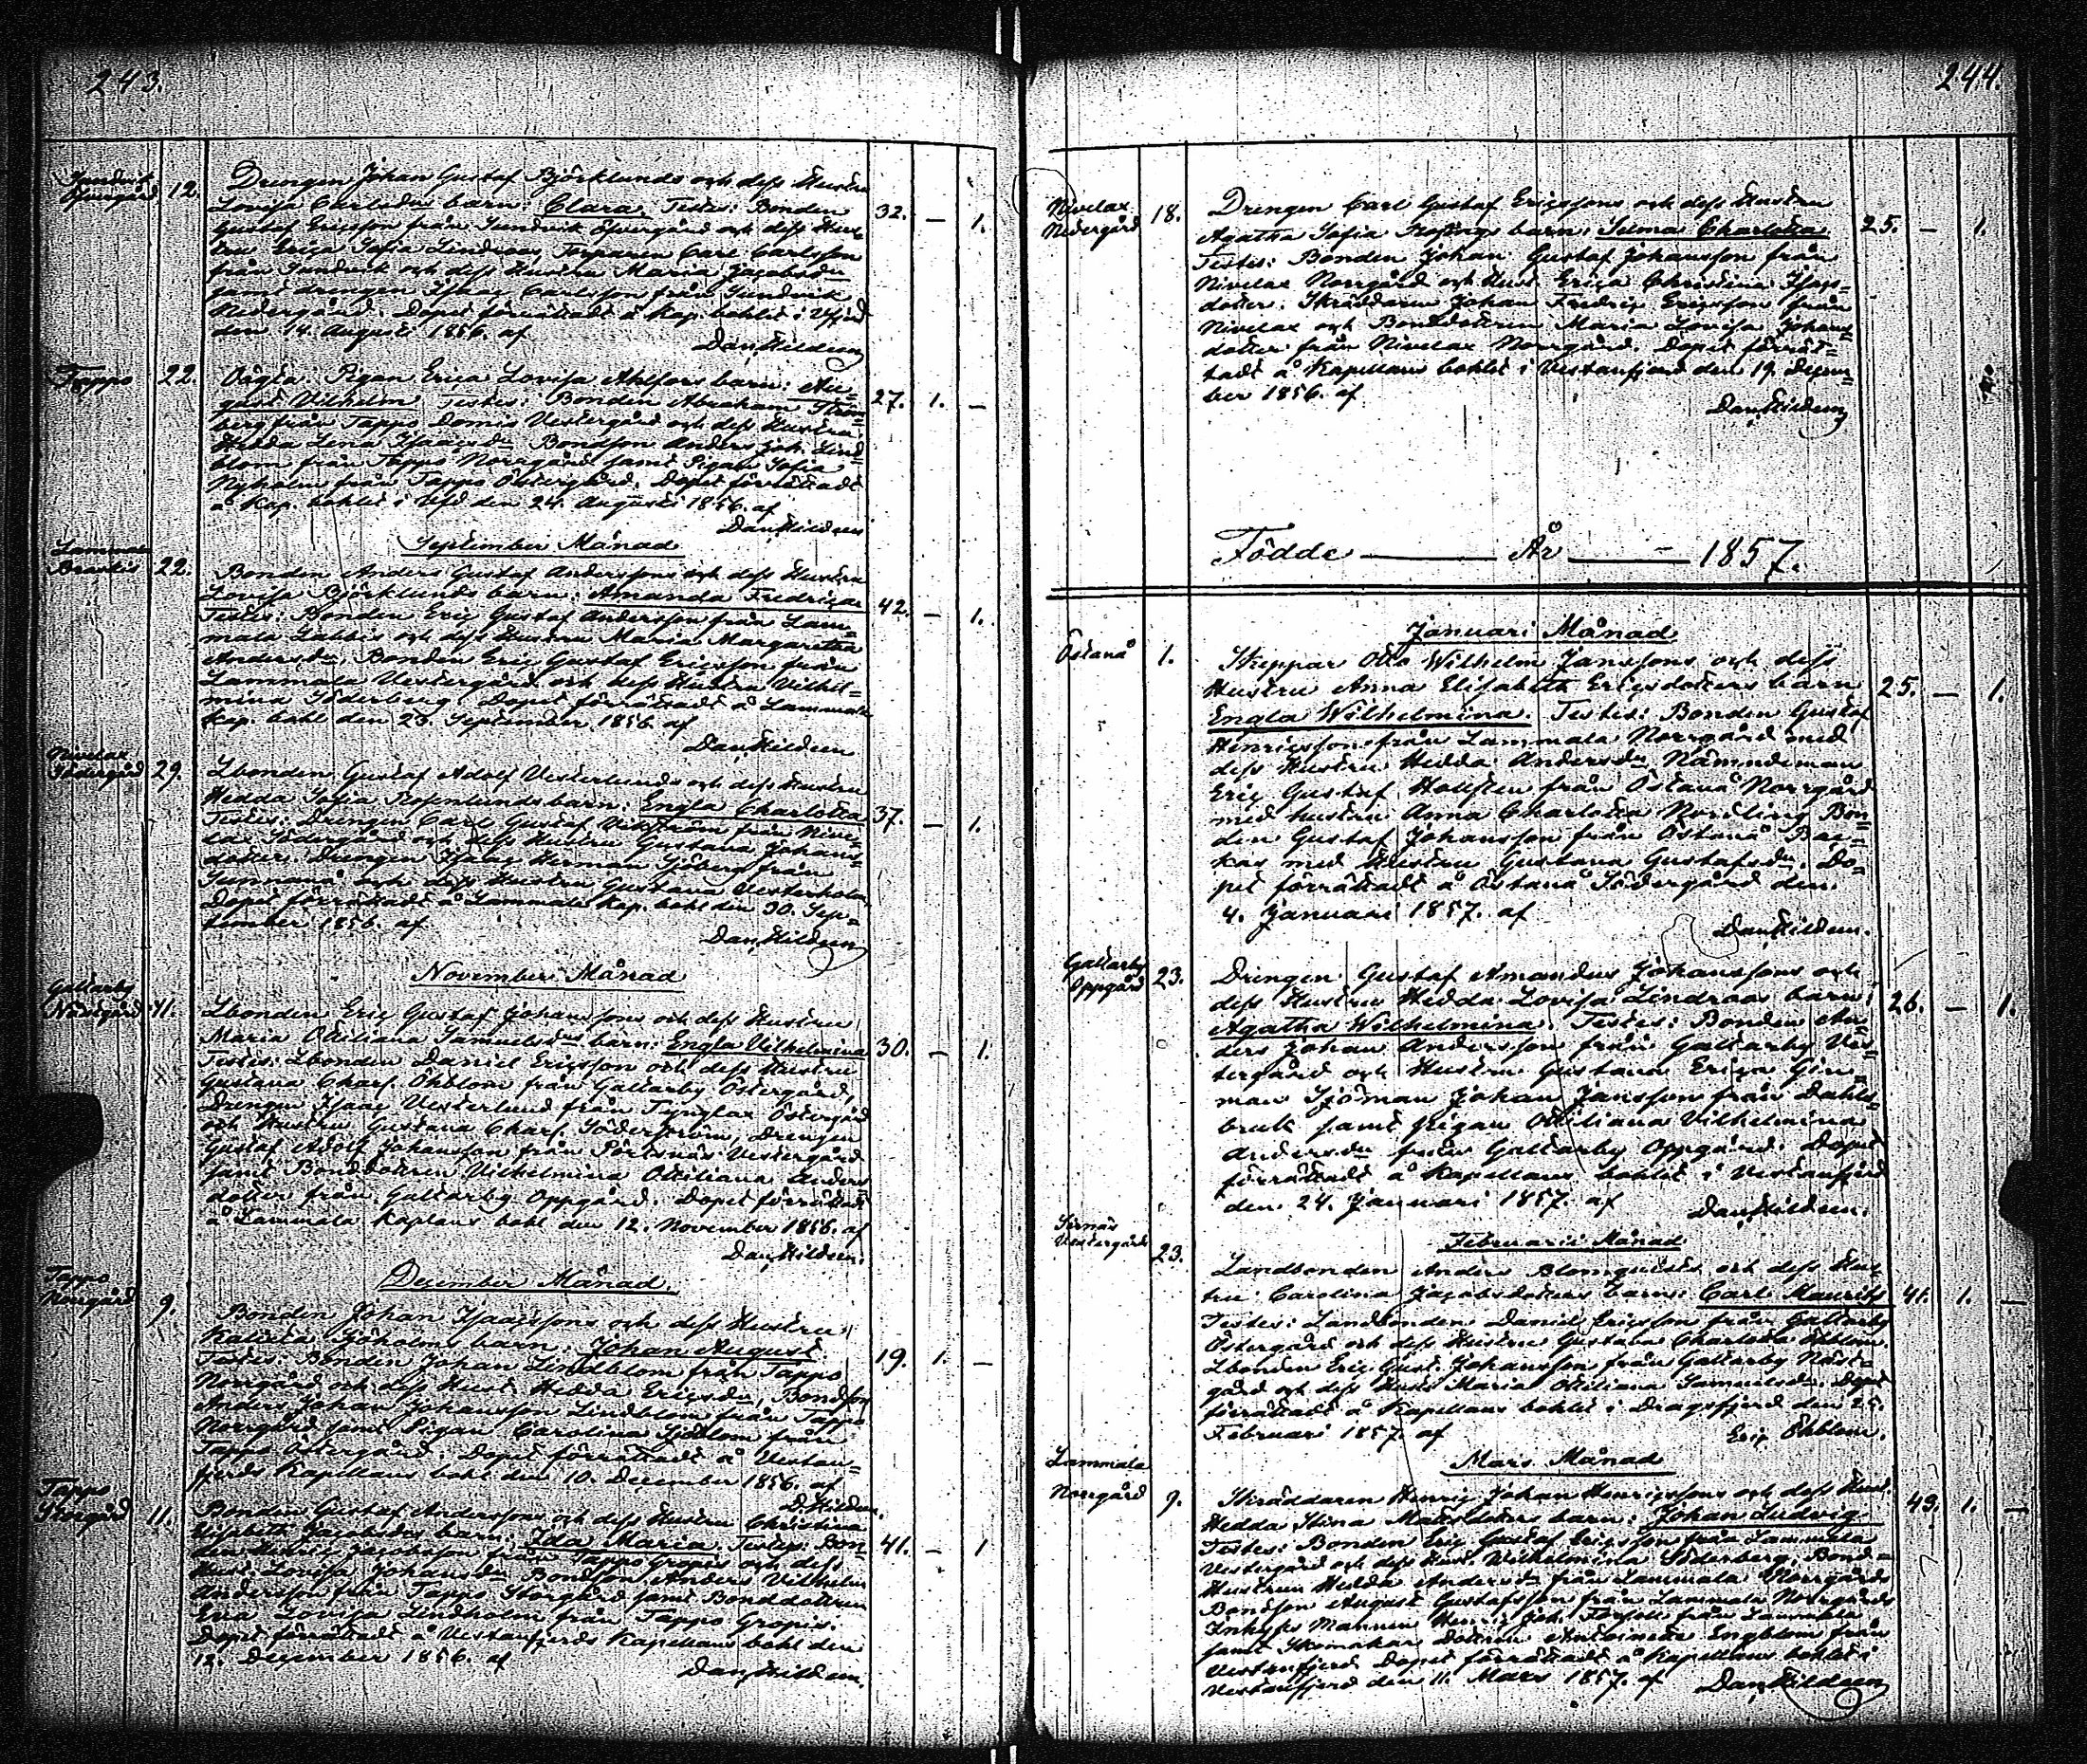 243.
Sundvik
12. Drengen Johan Gustaf Björklunds och dess Hustru
Lovisa Carlsdrs barn: Clara. Testes: Bonden 32. — 1.
Gustaf Ericsson från Sundvik och dess Hus-
tru Erica Sofia Lindroos, Torparen Carl Carlsson
från Sundvik och dess Hustru Maria Jacobsdr
samt drengen Isaac Carlsson från Sundvik
Nedergård. Dopet förrättadt å Kap. bohlet i
den 14. Augusti 1856. af
Dan. Hildeen
Tappo 22. Oägta: Pigan Erica Lovisa Ahlfors barn: Au-
gust Vilhelm Testes: Bonden Abraham 27. 1. —
berg från Tappo Domis Vestergård och dess Hustru
Hedda Lena Isaacsdr Bondson Anders Joh. Lind-
blom från Tappo Norrgård samt Pigan Sofia
Nyholm från Tappo Östergård. Dopet förrättadt
å Kap. bohlet i den 24. Augusti 1856. af
Dan. Hildeen
September Månad
Lammala
22. Bonden Anders Gustaf Anderssons och dess Hustru
Lovisa Björklunds barn: Amanda Fredrica 42. — 1.
Testes: Bonden Eric Gustaf Andersson från Lam-
mala och dess Hustru Maria Margaretha
Andersdr, Bonden Eric Gustaf Ericsson från
Lammala Vestergård och dess Hustru Vilhel-
mina Söderberg Dopet förrättadt å Lammala
Kap. bohl den 23. September 1856. af
Dan. Hildeen
Nivelax
Södergård 29. Lbonden Gustaf Adolf Vesterlunds och dess Hustru
Hedda Sofia Rosenlunds barn: Engla Charlotta 37. — 1.
Testes: Drengen Carl Gustaf Vikström från Nive-
lax Södergård och dess Hustru Gustava Johans-
dotter. Drengen Isaac Herman Sjöberg från
Sunnanå och dess Hustru Gustava Vesterholm
Dopet förrättadt å Lammala Kap. bohl den 30. Sep-
tember 1856. af
Dan. Hildeen
November Månad
Galtarby
Nästgård 11. Lbonden Eric Gustaf Johanssons och dess Hustru
Maria Ottiliana Samuelsdrs barn: Engla Vilhelmina 30. — 1.
Testes: Lbonden Daniel Ericsson och dess Hustru
Gustava Charl. Ekblom från Galtarby Östergård,
Drengen Isaac Vesterlund från Tynglax Östergård
och Hustru Gustava Charl. Söderström, Drengen
Gustaf Adolf Johansson från Pörtsnäs Vestergård
samt Bonddottren Vilhelmina Ottiliana Anders
dotter från Galtarby Oppgård. Dopet förrättadt
å Lammala Kaplans bohl den 12. November 1856. af
Dan. Hildeen.
December Månad.
Tappo
Norrgård 9. Bonden Johan Isaacssons och dess Hustru
Sjöholms barn: Johan August. 19. 1. —
Testes: Bonden Johan Lindblom från Tappo
Norrgård och dess Hust. Hedda Ericsdr, Bondson
Anders Johan Johansson Lindblom från Tappo
Norrgård samt Pigan Carolina Sjöblom från
Tappo Östergård. Dopet förrättadt å Vestan-
fjerds Kapellans bohl den 10. December 1856. af
D. Hildeen.
Tappo
Storgård 11. Bonden Gustaf Anderssons och dess Hustru Christina
Elisabeth Jacobsdrs barn: Ida Maria. Testes: Bon- 41. — 1
den Jacobsson från Tappo Gropis och dess
Hust. Lovisa Johansdr Bondson Anders Vilhelm
Andersson från Tappo Storgård samt Bonddottren
Eva Lovisa Lindholm från Tappo Gropis.
Dopet förrättadt å Vestanfjerds Kapellans bohl den
December 1856. af
Dan. Hildeen.
244.
Nivelax
Nedergård 18. Drengen Carl Gustaf Ericssons och dess Hustru
Agatha Sofia barn: Selma Charlotta 25. — 1.
Testes: Bonden Johan Gustaf Johansson från
Nivelax Norrgård och Hust. Erica Christina Isacs-
dotter. Skräddaren Johan Fredric Ericsson från
Nivelax och Bonddottren Maria Lovisa Johans-
dotter från Nivelax Norrgård. Dopet förrät-
tadt å Kapellans bohlet i Vestanfjerd den 19. Decem-
ber 1856. af
Dan. Hildeen
Födde — År — 1857.
Januari Månad
Östanå 1. Skeppar Otto Wilhelm Janssons och dess
Hustru Anna Elisabeth Ericsdotters barn 25. — 1.
Engla Wilhelmina. Testes: Bonden Gustaf
Henricsson från Lammala Norrgård med
dess Hustru Hedda Andersdr Nämndeman
Eric Gustaf Hollsten från Östanå Norrgård
med hustru Anna Charlotta Nordling Bon-
den Gustaf Johansson från Östanå Bac-
kas med Hustru Gustava Gustafsdr. Do-
pet förrättadt å Östanå Södergård den
4. Januari 1857. af
Dan. Hildeen.
Galtarby
Oppgård 23. Drengen Gustaf Amandus Johanssons och
dess Hustru Hedda Lovisa Lindroos barn: 26. — 1.
Agatha Wilhelmina. Testes: Bonden An-
ders Johan Andersson från Galtarby Ves-
tergård och Hustru Gustava Erica
man Sjöman Johan Jansson från Dahls-
bruk samt pigan Ottiliana Vilhelmina
Andersdr från Galtarby Oppgård. Dopet
förrättadt å Kapellans bohlet i Vestanfjerd
den 24. Januari 1857. af
Dan. Hildeen.
Februarii Månad
Sirnäs
Vestergård 23. Landbonden Anders Blomquists och dess Hus-
tru Carolina Jacobsdotters barn: Carl Maurits 41. 1. —
Testes: Landbonden Daniel Ericsson från Galtarby
Östergård och dess Hustru Gustava Charlotta Ekblom.
Lbonden Eric Gust. Johansson från Galtarby Näst-
gård och dess Hust. Maria Ottiliana Samuelsdr. Dopet
förrättadt å Kapellans bohlet i Dragsfjerd den 25.
Februari 1857. af
Eric Ekblom.
Mars Månad
Lammala
Norrgård 9. Skräddaren Henric Johan Henricssons och dess Hust.
Hedda Stina Matsdotters barn: Johan Ludvig 43. 1. —
Testes: Bonden Eric Gustaf Ericsson från Lammala
Vestergård och dess Hust. Vilhelmina Söderberg, Bond-
Hustrun Hedda Andersdr från Lammala Norrgård
Bondson August Gustafsson från Lammala Norrgård
Inhyses Mannen Henric Joh. från Lammala
samt Skomakar dottren Antoinette Engblom från
Vestanfjerd Dopet förrättadt å Kapellans bohlet i
Vestanfjerd den 11. Mars 1857. af
Dan. Hildeen